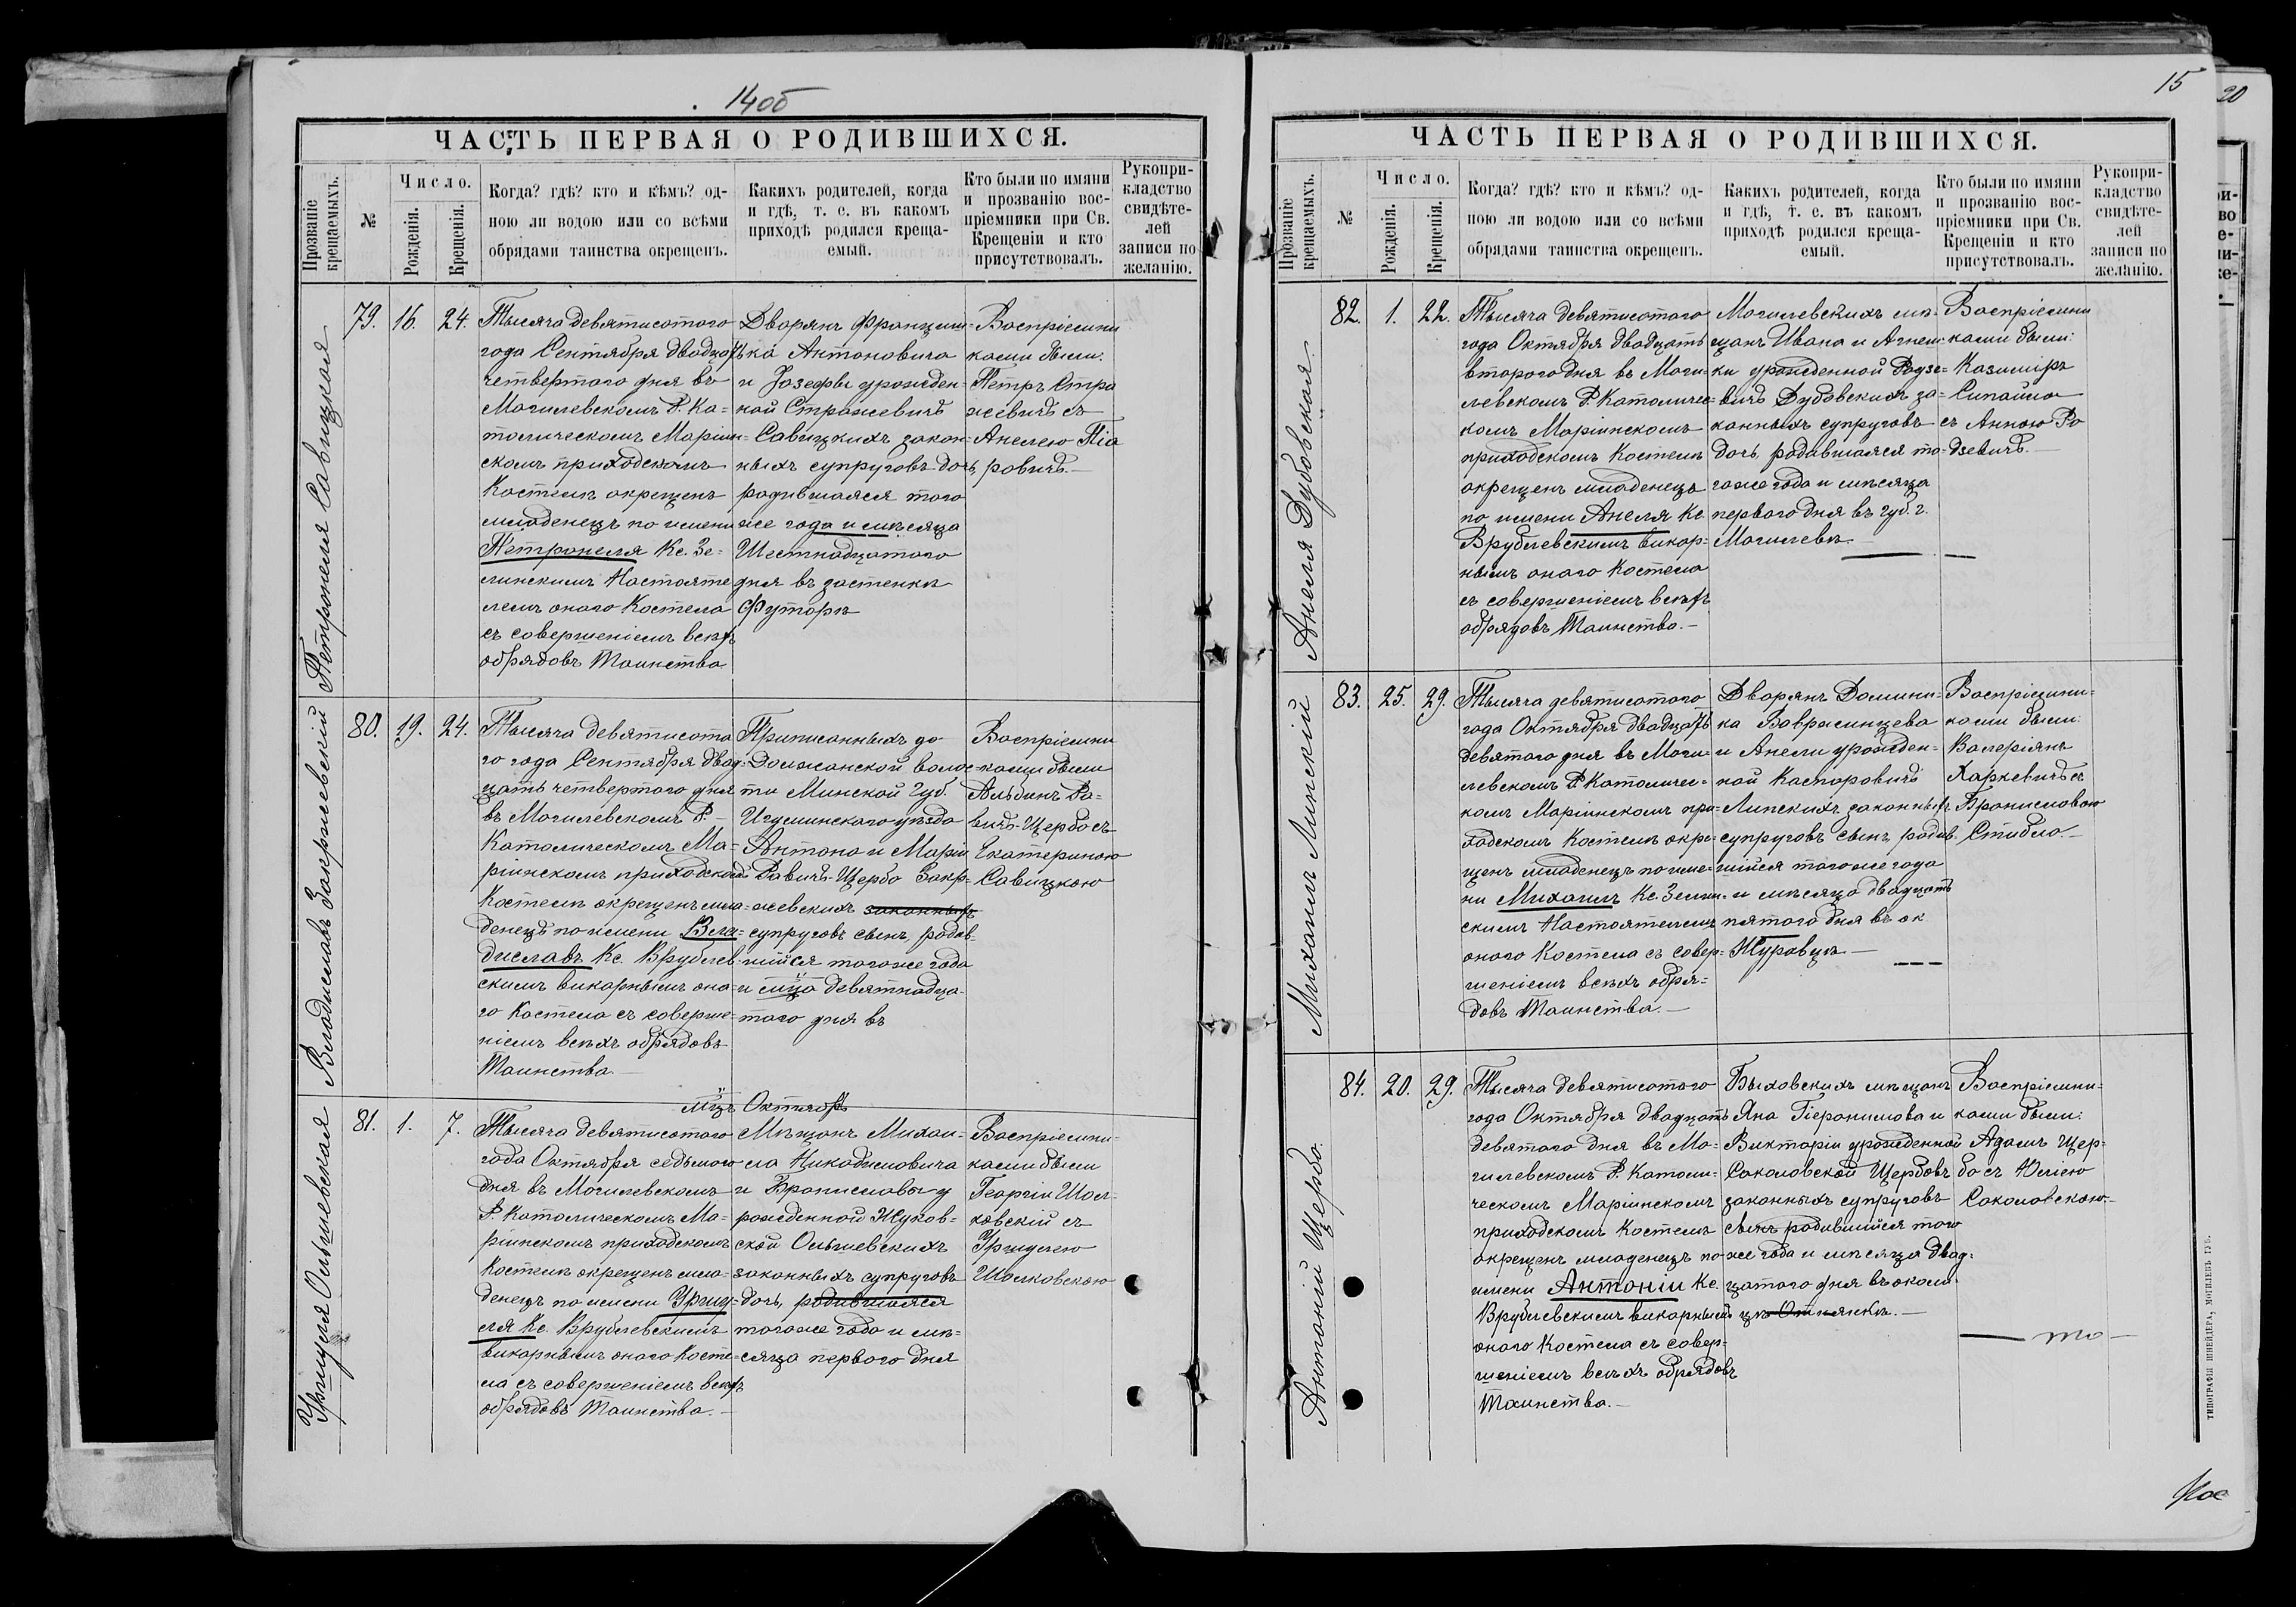 14об
ЧАСТЬ ПЕРВАЯ О РОДИВШИХСЯ.
Прозваніе крещаемыхъ.
№
Число.
Рожденія.
Крещенія.
Когда? гдѣ? кто и кѣмъ? од-
ною ли водою или со всѣми
обрядами таинства окрещенъ.
Какихъ родителей, когда
и гдѣ, т. е. въ какомъ
приходѣ родился креща-
емый.
Кто были по имяни
и прозванію вос-
пріемники при Св.
Крещеніи и кто
присутствовалъ.
Рукопри-
кладство
свидѣте-
лей
записи по
желанію.
Петронеля Савицкая
79. 16. 24.
Тысяча девятисотого
года Сентября двадцать
четвертого дня въ
Могилевскомъ Р. Ка-
толическомъ Маріин-
скомъ приходскомъ
Костелѣ окрещенъ
младенецъ по имени
Петронеля Кс. Зе-
линскимъ Настояте
лемъ оного Костела
съ совершеніемъ всѣхъ
обрядовъ Таинства
Дворянъ Франциш-
ка Антоновича
и Іозефы урожден-
ной Стражевичъ
Савицкихъ закон-
ныхъ супруговъ дочь
родившаяся того
же года и мѣсяца
Шестнадцатого
дня въ застенкѣ
Футоръ
Воспріемни
ками были:
Петръ Стра
жевичъ съ
Анелею Піа
ровичъ.
Владиславъ Закржевскій
80. 19. 24.
Тысяча девятисота
го года Сентября двад-
цать четвертого дня
въ Могилевскомъ Р.-
Католическомъ Ма-
ріинскомъ приходскомъ
Костелѣ окрещенъ мла-
денецъ по имени Вла-
диславъ Кс. Врублев-
скимъ викарнымъ она-
го Костела съ соверше-
ніемъ всѣхъ обрядовъ
Таинства
Приписанныхъ до
Должанской волос-
ти Минской Губ.
Игуминскаго уѣзда
Антона и Маріи
Равичъ-Щербо Закр-
жевскихъ законныхъ
супруговъ сынъ, родив-
шійся тогоже года
и мца девятнадца-
того дня въ
Воспріемни
ками были
Альбинъ Ра-
вичъ-Щербо съ
Екатериною
Савицкою
Уршуля Ольшевская
мцъ Октябрь
81. 1. 7.
Тысяча девятисотого
года Октября седьмого
дня въ Могилевскомъ
Р. Католическомъ Ма-
ріинскомъ приходскомъ
Костелѣ окрещенъ мла-
денецъ по имени Уршу-
ля Кс. Врублевскимъ
викарнымъ оного Косте-
ла съ совершеніемъ всѣхъ
обрядовъ Таинства.
Мѣщанъ Михаи-
ла Никодимовича
и Брониславы у
рожденной Жуков-
ской Ольшевскихъ
законныхъ супруговъ
дочь, родившаяся
тогоже года и мѣ-
сяца первого дня
Воспріемни-
ками были
Георгіи Шол-
ковскій съ
Уршулею
Шолковскою
15
20
ЧАСТЬ ПЕРВАЯ О РОДИВШИХСЯ.
Прозваніе крещаемыхъ.
№
Число.
Рожденія.
Крещенія.
Когда? гдѣ? кто и кѣмъ? од-
ною ли водою или со всѣми
обрядами таинства окрещенъ.
Какихъ родителей, когда
и гдѣ, т. е. въ какомъ
приходѣ родился креща-
емый.
Кто были по имяни
и прозванію вос-
пріемники при Св.
Крещеніи и кто
присутствовалъ.
Рукопри-
кладство
свидѣте-
лей
записи по
желанію.
Анеля Дубовская
82. 1. 22.
Тысяча девятисотого
года Октября двадцать
второго дня въ Моги-
левскомъ Р. Католичес-
комъ Маріинскомъ
приходскомъ Костелѣ
окрещенъ младенецъ
по имени Анеля Кс.
Врублевскимъ викар-
нымъ онаго Костела
съ совершеніемъ всѣхъ
обрядовъ Таинства.-
Могилевскихъ мѣ-
щанъ Ивана и Агнеш-
ки урожденной Родзе-
вичъ Дубовскихъ за-
конныхъ супруговъ
дочь, родившаяся то-
гоже года и мѣсяца
первого дня въ губ. г.
Могилевѣ
Воспріемни
ками были:
Казиміръ
Сипайло
съ Анною Ро
дзевичъ.
Михаилъ Липскій
83. 25. 29.
Тысяча девятисотого
года Октября двадцать
девятого дня въ Моги-
левскомъ Р. Католичес-
комъ Маріинскомъ при-
ходскомъ Костелѣ окре-
щенъ младенецъ по име-
ни Михаилъ Кс. Зелин-
скимъ Настоятелемъ
оного Костела съ совер-
шеніемъ всѣхъ обря-
довъ Таинства.
Дворянъ Домини-
ка Вавринцева
и Анели урожден-
ной Каспоровичъ
Липскихъ законныхъ
супруговъ сынъ, родив-
шійся тогоже года
и мѣсяца двадцать
пятого дня въ ок
Журовцѣ
Воспріемни-
ками были:
Валеріянъ
Харкевичъ съ
Брониславою
Стибло
Антоній Щербо.
84. 20. 29.
Тысяча девятисотого
года Октября двадцать
девятого дня въ Мо-
гилевскомъ Р. Католи-
ческомъ Маріинскомъ
приходскомъ Костелѣ
окрещенъ младенецъ по
имени Антоніи Кс.
Врублевскимъ викарнымъ
оного Костела съ совер-
шеніемъ всѣхъ обрядовъ
Таинства.
Быховскихъ мѣщанъ
Яна Гіеронимова и
Викторіи урожденной
Соколовской Щербовъ
законныхъ супруговъ
сынъ родившійся того
же года и мѣсяца двад-
цатого дня въ околи-
цѣ
Воспріемни-
ками были:
Адамъ Щер-
бо съ Юліею
Соколовскою
ТИПОГРАФІЯ ШНЕЙДЕРА, МОГИЛЕВЪ ГУБ.